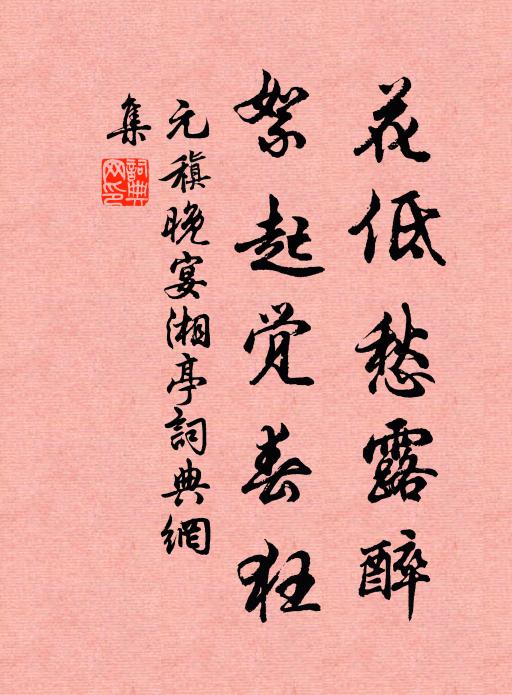 花低愁露醉
絮起觉春狂
元稹晚宴湘亭詞典網
集
詞典网印